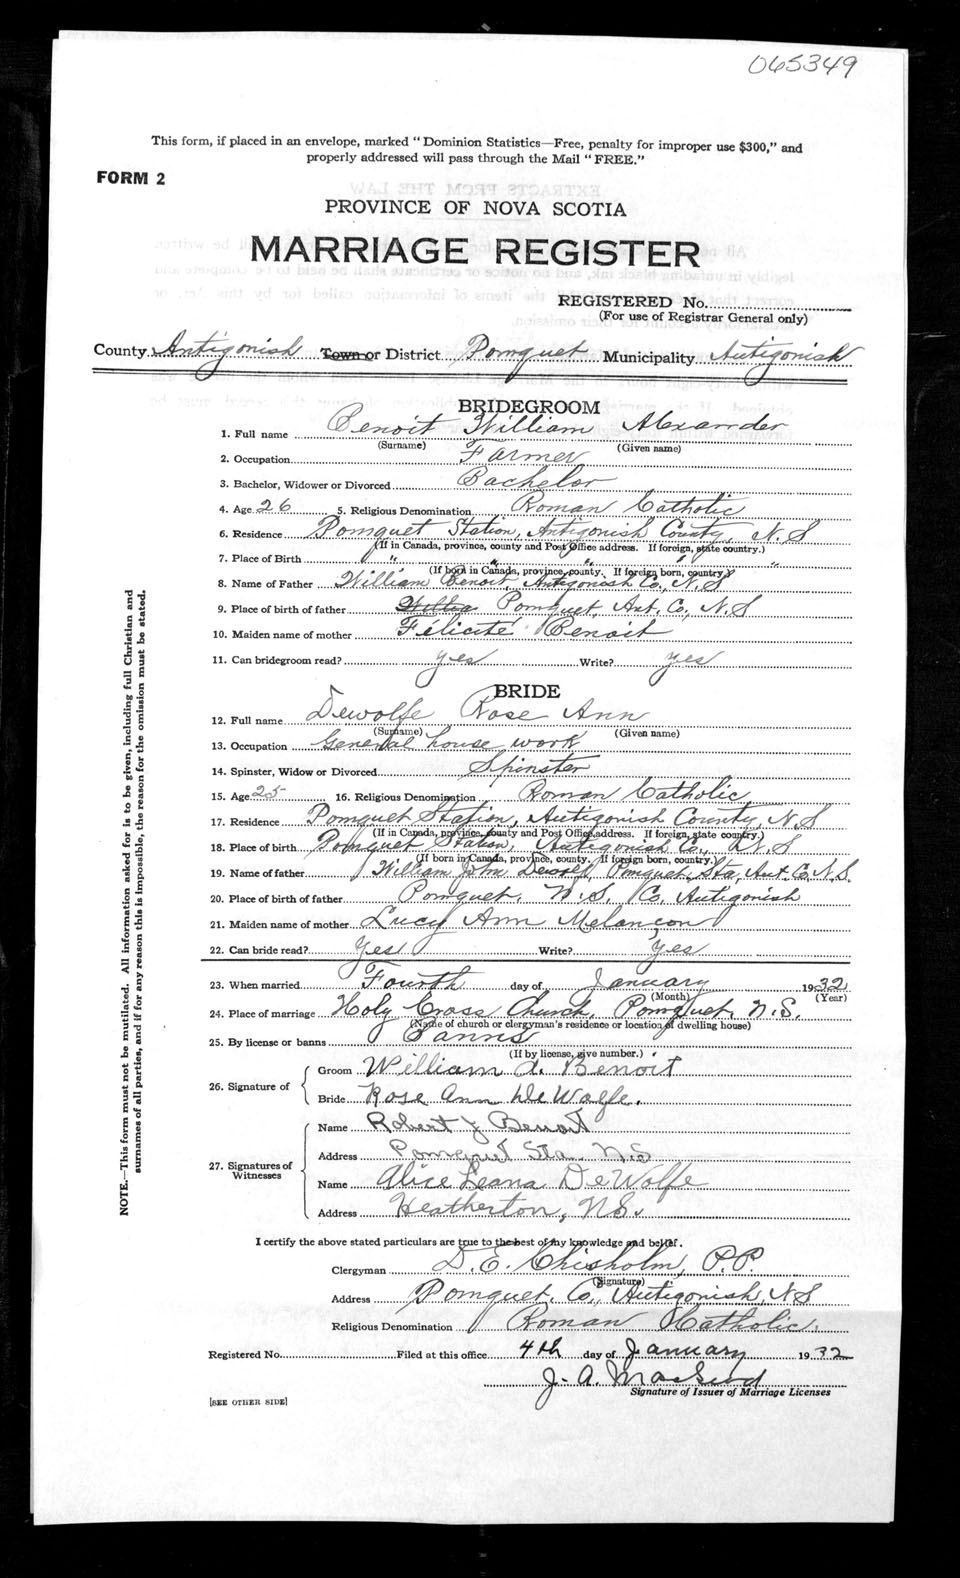 065349
This form, if placed in an envelope, marked "Dominion Statistics—Free, penalty for improper use $300," and
properly addressed will pass through the Mail "FREE."
FORM 2
PROVINCE OF NOVA SCOTIA
MARRIAGE REGISTER
REGISTERED No.
(For use of Registrar General only)
County Antigonish Town or District Pomquet Municipality Antigonish
BRIDEGROOM
1. Full name Benoit William Alexander
(Surname) (Given name)
2. Occupation Farmer
3. Bachelor, Widower or Divorced Bachelor
4. Age 26 5. Religious Denomination Roman Catholic
6. Residence Pomquet Station, Antigonish County, N.S
(If in Canada, province, county and Post Office address. If foreign, state country.)
7. Place of Birth " " " "
(If born in Canada, province, county. If foreign born, country.)
8. Name of Father William Benoit, Antigonish Co., N.S
9. Place of birth of father Willia Pomquet, Ant, Co, N.S
10. Maiden name of mother Félicité Benoit
11. Can bridegroom read? yes Write? yes
BRIDE
12. Full name Dewolfe Rose Ann
(Surname) (Given name)
13. Occupation General house work
14. Spinster, Widow or Divorced Spinster
15. Age 25 16. Religious Denomination Roman Catholic
17. Residence Pomquet Station, Antigonish County, N.S
(If in Canada, province, county and Post Office address. If foreign, state country.)
18. Place of birth Pomquet Station, Antigonish Co., N.S
(If born in Canada, province, county. If foreign born, country.)
19. Name of father William John Dewolf, Pomquet Sta, Ant. Co. N.S.
20. Place of birth of father Pomquet, N.S. Co, Antigonish
21. Maiden name of mother Lucy Ann Melançon
22. Can bride read? Yes Write? Yes
23. When married Fourth day of January 1932
(Month) (Year)
24. Place of marriage Holy Cross Church, Pomquet, N.S.
(Name of church or clergyman's residence or location of dwelling house)
25. By license or banns Banns
(If by license, give number.)
26. Signature of
Groom William A. Benoit
Bride Rose Ann DeWolfe.
27. Signatures of Witnesses
Name Robert J Benoit
Address Pomquet Sta. N.S
Name Alice Leana DeWolfe
Address Heatherton, N.S.
I certify the above stated particulars are true to the best of my knowledge and belief.
Clergyman D. E. Chisholm, P.P.
(Signature)
Address Pomquet, Co., Antigonish, N.S
Religious Denomination Roman Catholic.
Registered No. Filed at this office 4th day of January 1932
J. A. MacLeod
Signature of Issuer of Marriage Licenses
[SEE OTHER SIDE]
NOTE.—This form must not be mutilated. All information asked for is to be given, including full Christian and
surnames of all parties, and if for any reason this is impossible, the reason for the omission must be stated.